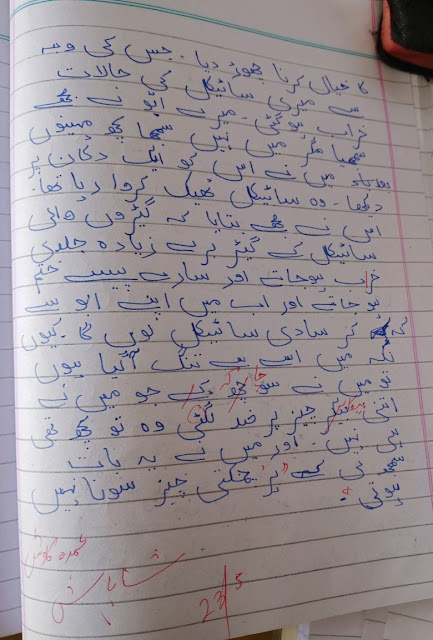 کا خیال کرنا چھوڑ دیا۔ جس کی وجہ
سے میری سائیکل کی حالات
خراب ہوگئی۔ میرے ابّو نے مجھے
سمجھایا مگر میں نہیں سمجھا کچھ مہینوں
بعد میں نے اس کو ایک دکان پر
دیکھا۔ وہ سائیکل ٹھیک کروا رہا تھا۔
اس نے مجھے بتایا کہ گیئروں والی
سائیکل کے گیئر بہت زیادہ جلدی
خراب ہوجاتے اور سارے پیسے ختم
ہو جاتے اور اب میں اپنے ابو سے
کہہ کر سادی سائیکل لوں گا۔ کیوں
نکہ میں اس سے تنگ آگیا ہوں
تو میں نے سوچا کہ جو میں نے
اتنی چیز پر ضد لگئی وہ تو کچھ تھی
ہی نہیں۔ اور میں نے یہ بات
سمجھ لی کہ "ہر چمکتی چیز سونا نہیں
ہوتی"۔
عمدہ کاوش
شاباش
23/5